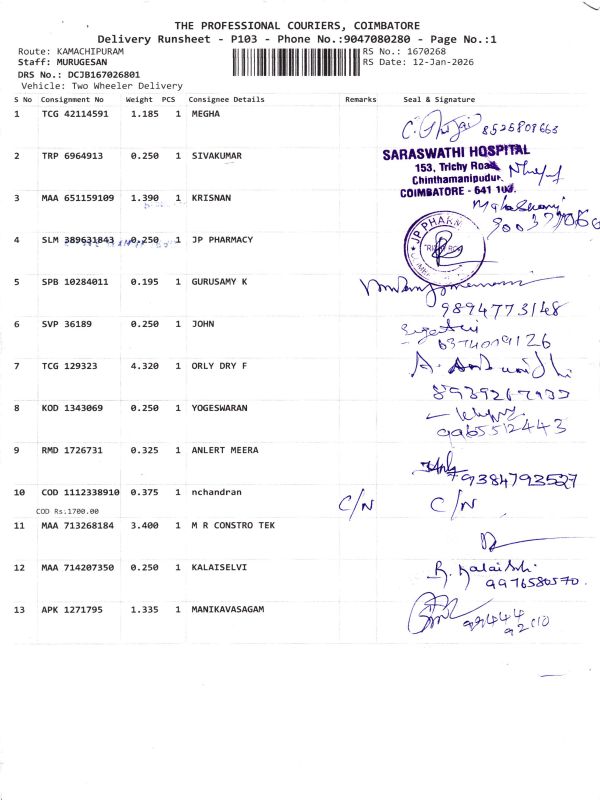 THE PROFESSIONAL COURIERS, COIMBATORE
Delivery Runsheet - P103 - Phone No.:9047080280 - Page No.:1
Route: KAMACHIPURAM RS No.: 1670268
Staff: MURUGESAN RS Date: 12-Jan-2026
DRS No.: DCJB167026801
Vehicle: Two Wheeler Delivery
S No Consignment No Weight PCS Consignee Details Remarks Seal & Signature
1 TCG 42114591 1.185 1 MEGHA
8525809663
2 TRP 6964913 0.250 1 SIVAKUMAR
SARASWATHI HOSPITAL
153, Trichy Road
Chinthamanipudur
COIMBATORE - 641 103.
3 MAA 651159109 1.390 1 KRISNAN
4 SLM 389631843 0.250 1 JP PHARMACY
JP PHARM
5 SPB 10284011 0.195 1 GURUSAMY K
9894773148
6 SVP 36189 0.250 1 JOHN
6374019126
7 TCG 129323 4.320 1 ORLY DRY F
8 KOD 1343069 0.250 1 YOGESWARAN
9965512443
9 RMD 1726731 0.325 1 ANLERT MEERA
9384793527
10 COD 1112338910 0.375 1 nchandran C/N C/N
COD Rs.1700.00
11 MAA 713268184 3.400 1 M R CONSTRO TEK
12 MAA 714207350 0.250 1 KALAISELVI
9976580570.
13 APK 1271795 1.335 1 MANIKAVASAGAM
99444
92110